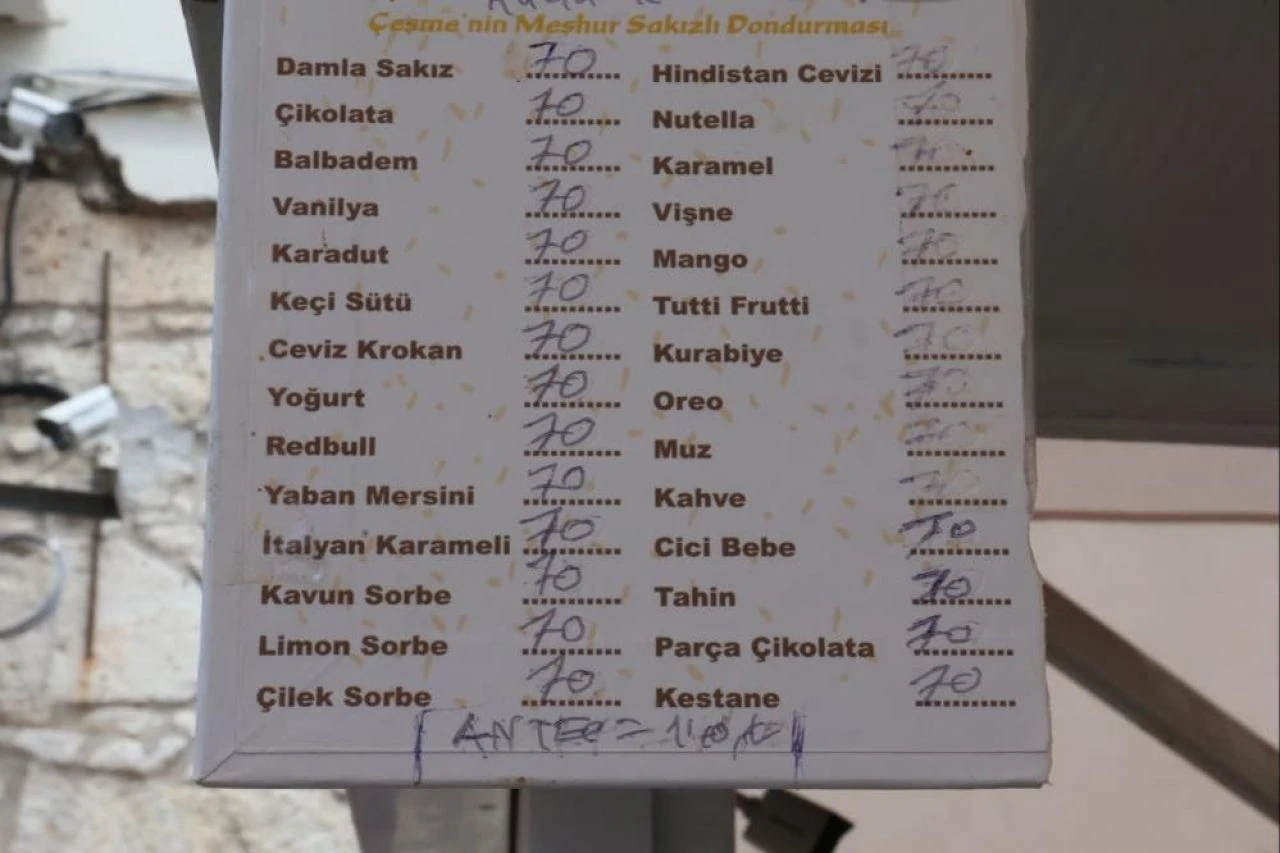 Çeşme'nin Meşhur Sakızlı Dondurması
Damla Sakız 70 Hindistan Cevizi 70
Çikolata 70 Nutella 70
Balbadem 70 Karamel 70
Vanilya 70 Vişne 70
Karadut 70 Mango 70
Keçi Sütü 70 Tutti Frutti 70
Ceviz Krokan 70 Kurabiye 70
Yoğurt 70 Oreo 70
Redbull 70 Muz 70
Yaban Mersini 70 Kahve 70
İtalyan Karameli 70 Cici Bebe 70
Kavun Sorbe 70 Tahin 70
Limon Sorbe 70 Parça Çikolata 70
Çilek Sorbe 70 Kestane 70